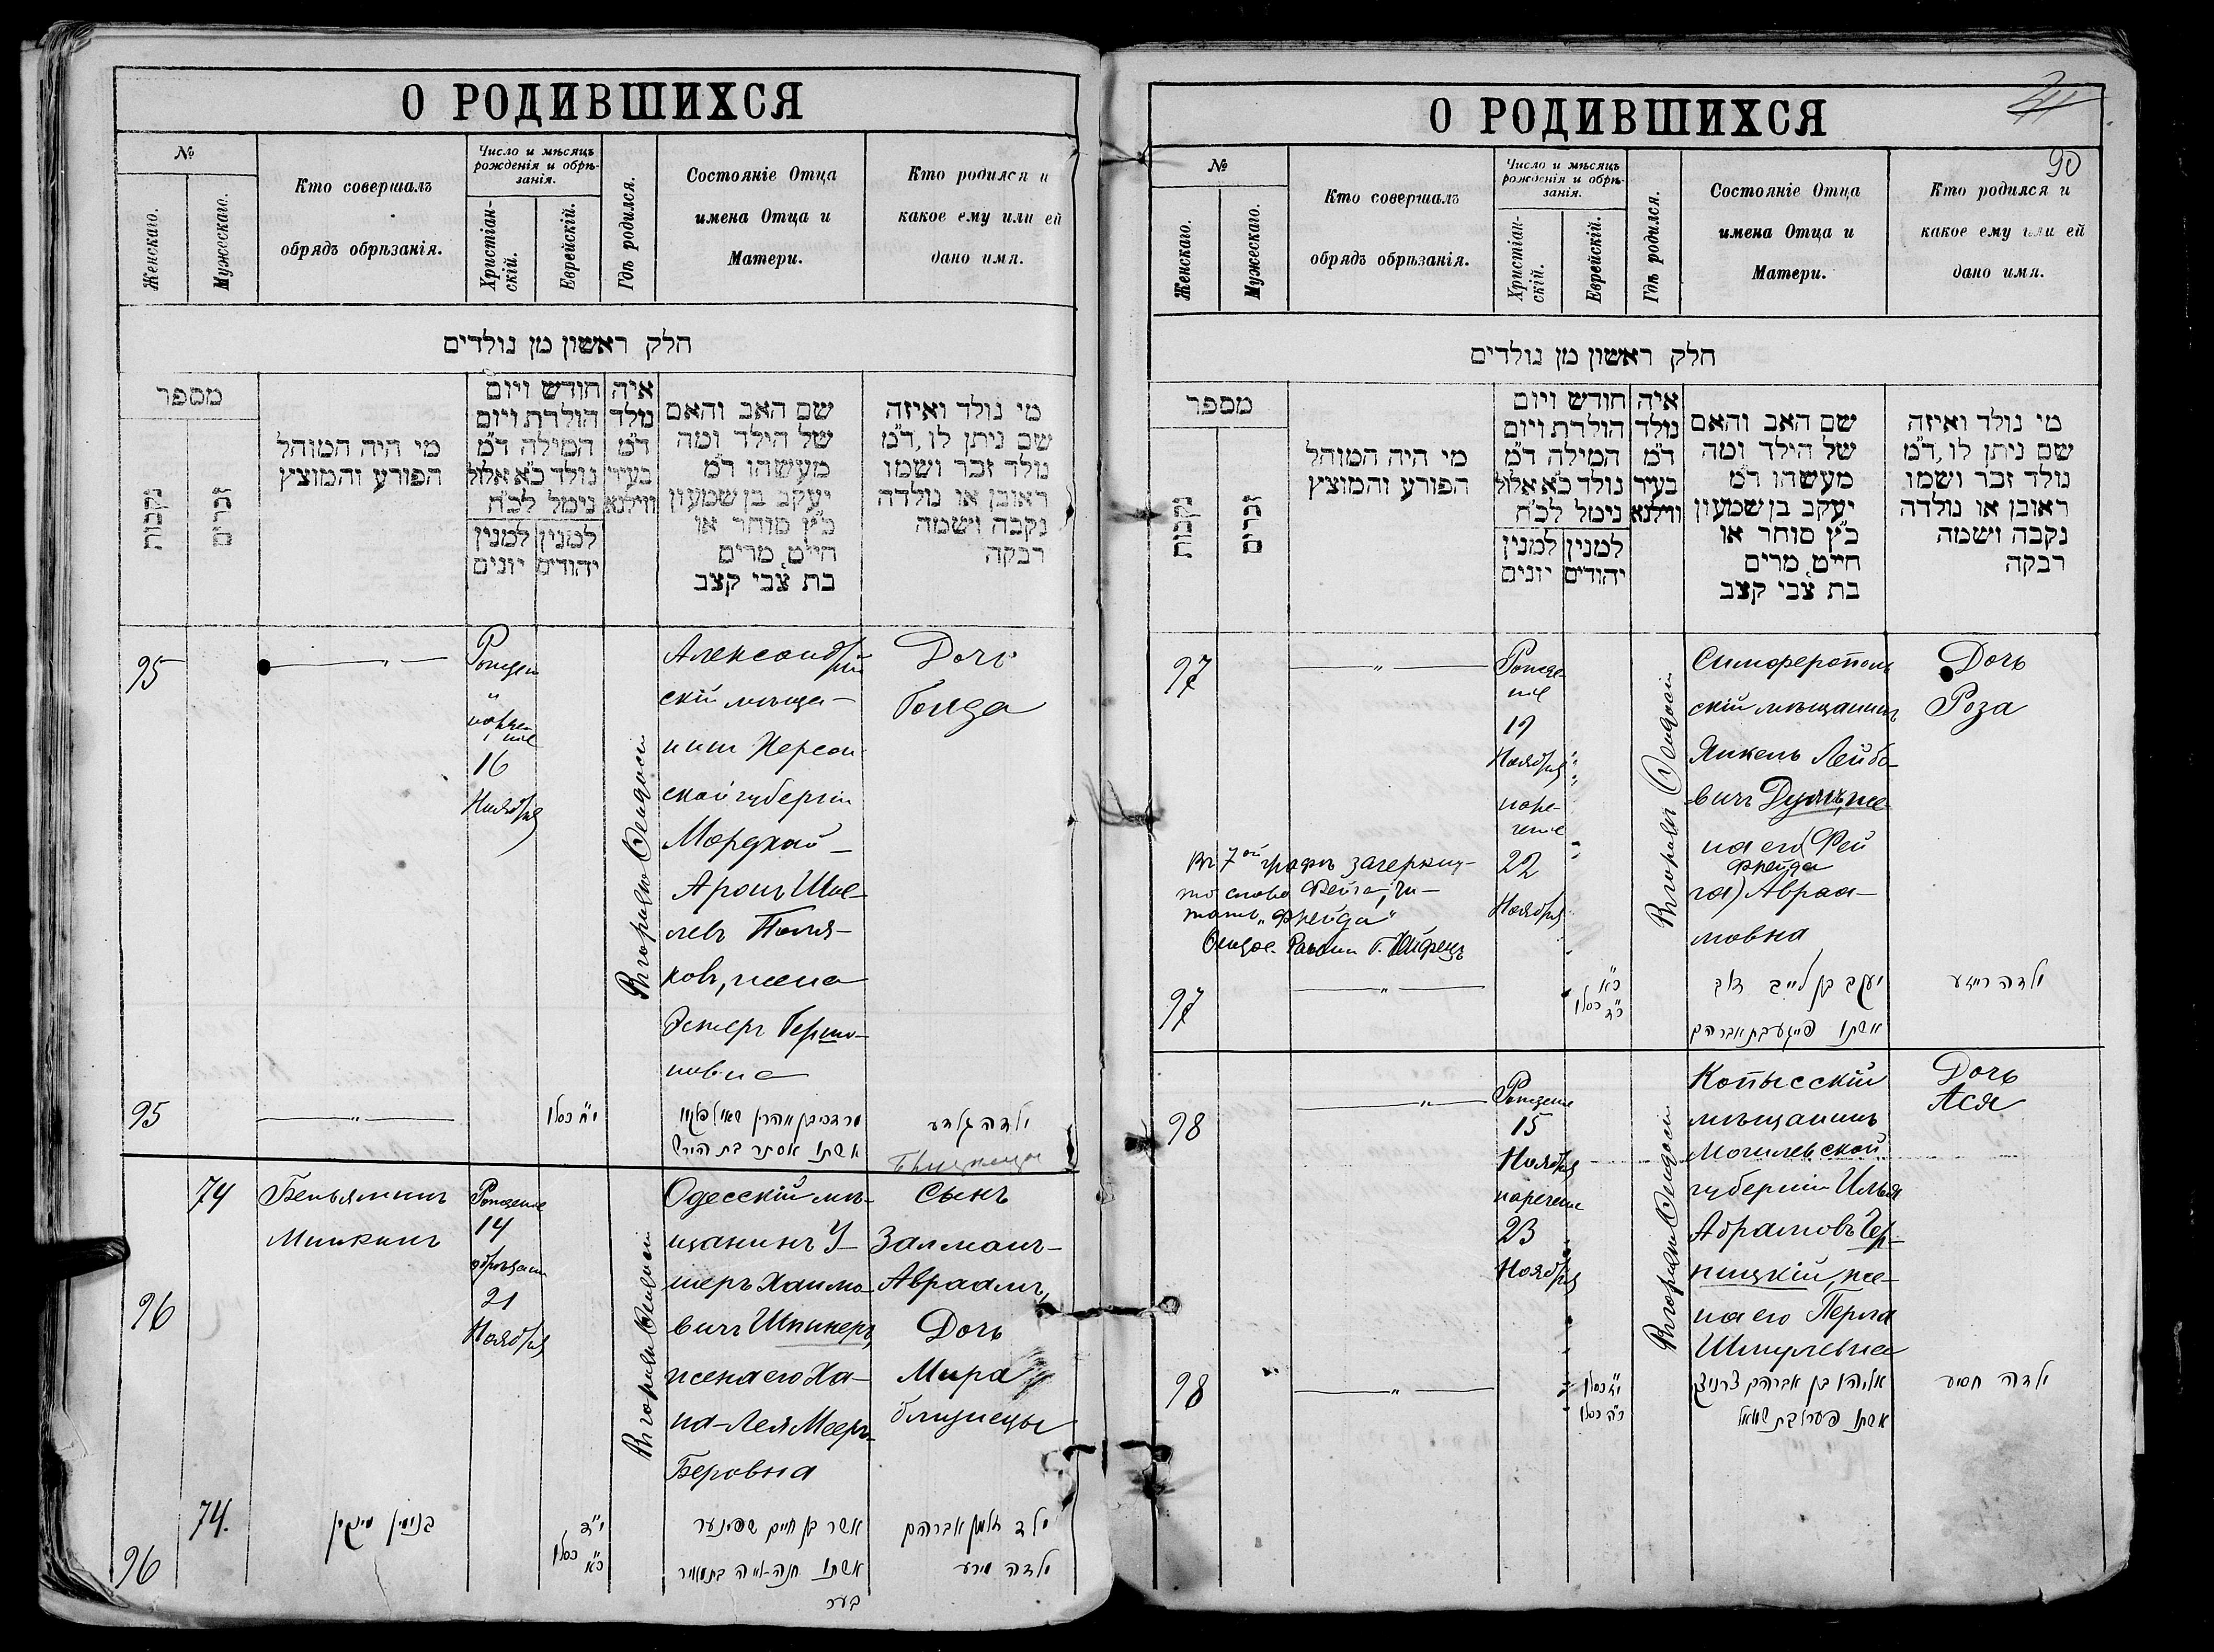 О РОДИВШИХСЯ
№
Женскаго.
Мужескаго.
Кто совершалъ
обрядъ обрѣзанія.
Число и мѣсяцъ
рожденія и обрѣ-
занія.
Христіан-
скій.
Еврейскій.
Гдѣ родился.
Состояніе Отца
имена Отца и
Матери.
Кто родился и
какое ему или ей
дано имя.
חלק ראשון מן נולדים
מספר
נקבות
זכרים
מי היה המוהל
הפורע והמוצץ
חודש ויום
הולדת ויום
המילה ד״מ
נולד כ״א אלול
נימל לכ״ח
למנין
יונים
למנין
יהודים
איה
נולד
ד״מ
בעיר
ווילנא
שם האב והאם
של הילד ומה
מעשהו ד״מ
יעקב בן שמעון
כ״ץ סוחר או
חייט, מרים
בת צבי קצב
מי נולד ואיזה
שם ניתן לו, ד״מ
נולד זכר ושמו
ראובן או נולדה
נקבה ושמה
רבקה
95
Рожден
и
нарече
ніе
16
Ноября
Въ городѣ Ѳеодосіи
Александрій
скій мѣща-
нинъ Херсон
ской губерніи
Мордхай-
Аронъ Шое-
левъ Поля-
ковъ, жена
Эстеръ Герш-
новна
Дочь
Голда
95
י״ח כסלו
אשתו אסתר בת הירש
ילדה גולדע
74
96
Беньяминъ
Минкинъ
Рожденіе
14
обрѣзан
21
Ноября
Въ городѣ Ѳеодосіи
Одесскій мѣ-
щанинъ У-
шеръ Хаимо-
вичъ Шпинеръ,
жена его Ха-
на-Лея Мееръ-
Беровна
Сынъ
Залманъ-
Авраамъ,
Дочь
Мира
близнецы
74.
96
בנימין מינקין
כסלו
אשר בן חיים שפינער
אשתו חנה-לייה בת מאיר
בער
ילד זלמן אברהם
ילדה מירע
О РОДИВШИХСЯ
90
№
Женскаго.
Мужескаго.
Кто совершалъ
обрядъ обрѣзанія.
Число и мѣсяцъ
рожденія и обрѣ-
занія.
Христіан-
скій.
Еврейскій.
Гдѣ родился.
Состояніе Отца
имена Отца и
Матери.
Кто родился и
какое ему или ей
дано имя.
חלק ראשון מן נולדים
מספר
נקבות
זכרים
מי היה המוהל
הפורע והמוצץ
חודש ויום
הולדת ויום
המילה ד״מ
נולד כ״א אלול
נימל לכ״ח
למנין
יונים
למנין
יהודים
איה
נולד
ד״מ
בעיר
ווילנא
שם האב והאם
של הילד ומה
מעשהו ד״מ
יעקב בן שמעון
כ״ץ סוחר או
חייט, מרים
בת צבי קצב
מי נולד ואיזה
שם ניתן לו, ד״מ
נולד זכר ושמו
ראובן או נולדה
נקבה ושמה
רבקה
97
Рожде-
ніе
19
Ноября
наре-
ченіе
22
Ноября
Въ городѣ Ѳеодосіи
Симферополь
скій мѣщанинъ
Янкель Лейбо-
вичъ же
на его (Фей
Фрейда
га) Авраа-
мовна
Дочь
Роза
Въ 7ой графѣ зачеркну-
то слово Фейга, чи-
тать „Фрейда“
Ѳеодос. Раввинъ
97
כסלו
יעקב בן לייב
אשתו בת אברהם
ילדה רייזע
98
Рожденіе
15
Ноября
нареченіе
23
Ноября
Въ городѣ Ѳеодосіи
Копысскій
мѣщанинъ
Могилевской
губерніи Илья
Абрамовъ Чер-
ницкій, же-
на его Перла
Шмулевна
Дочь
Ася
98
כסלו
כסלו
אליהו בן אברהם
אשתו פערל בת שמואל
ילדה אסיע